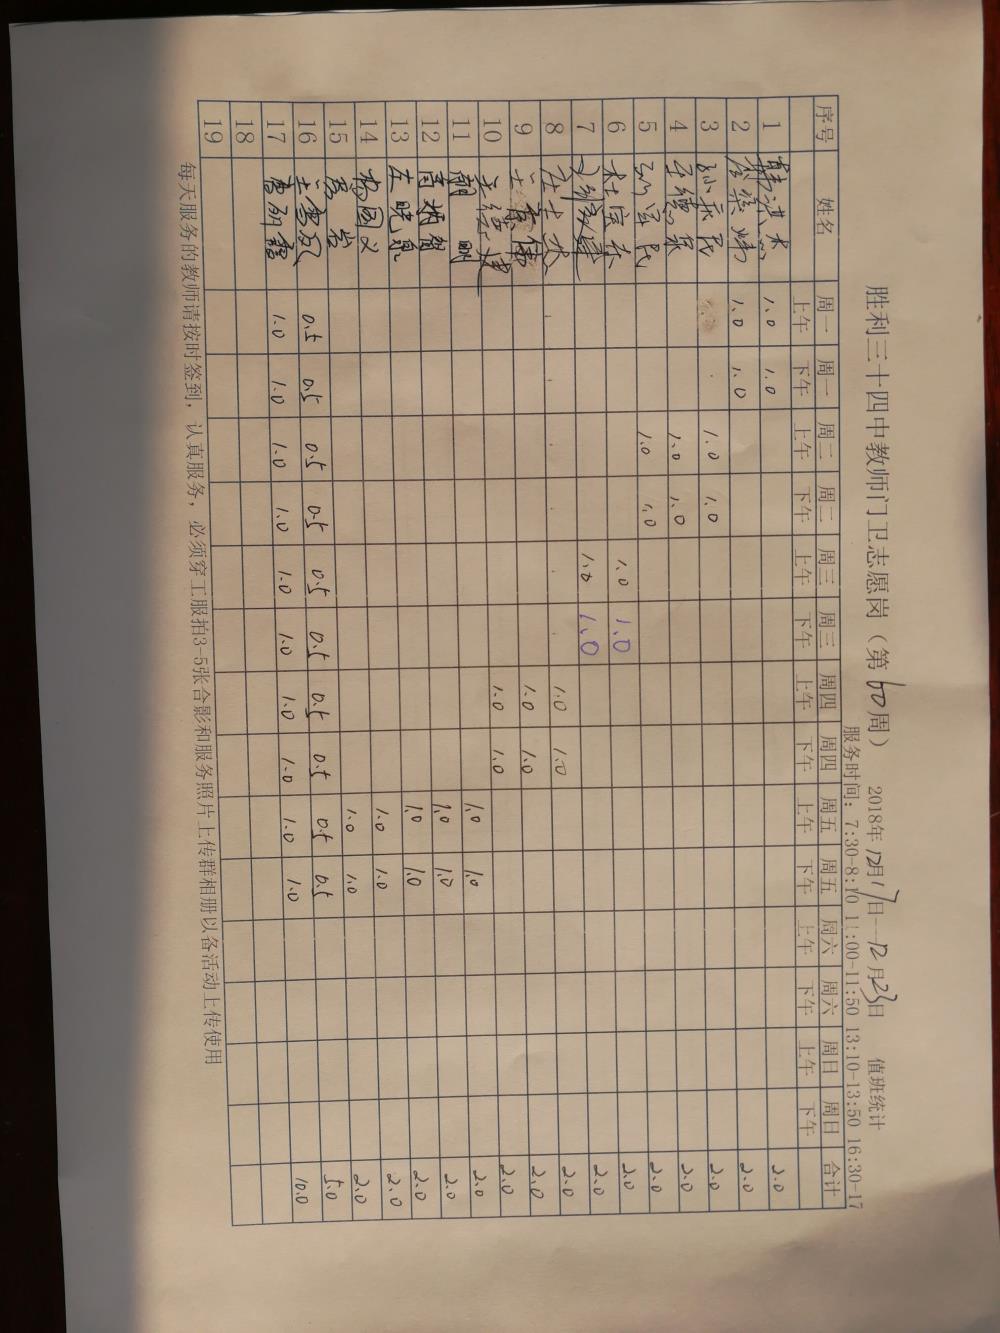 胜利三十四中教师门卫志愿岗（第60周） 2018年12月17日—12月23日 值班统计
服务时间：7:30-8:10 11:00-11:50 13:10-13:50 16:30-17
序号 姓名 周一上午 周一下午 周二上午 周二下午 周三上午 周三下午 周四上午 周四下午 周五上午 周五下午 周六上午 周六下午 周日上午 周日下午 合计
1 1.0 1.0 2.0
2 1.0 1.0 2.0
3 孙永民 1.0 1.0 2.0
4 王德泉 1.0 1.0 2.0
5 孙军民 1.0 1.0 2.0
6 杜宝东 1.0 1.0 2.0
7 1.0 1.0 2.0
8 1.0 1.0 2.0
9 1.0 1.0 2.0
10 1.0 1.0 2.0
11 1.0 1.0 2.0
12 1.0 1.0 2.0
13 左晓泉 1.0 1.0 2.0
14 杨国义 1.0 1.0 2.0
15 1.0 1.0 2.0
16 0.5 0.5 0.5 0.5 0.5 0.5 0.5 0.5 0.5 0.5 5.0
17 1.0 1.0 1.0 1.0 1.0 1.0 1.0 1.0 1.0 1.0 10.0
18
19
每天服务的教师请按时签到，认真服务，必须穿工服拍3-5张合影和服务照片上传群相册以备活动上传使用